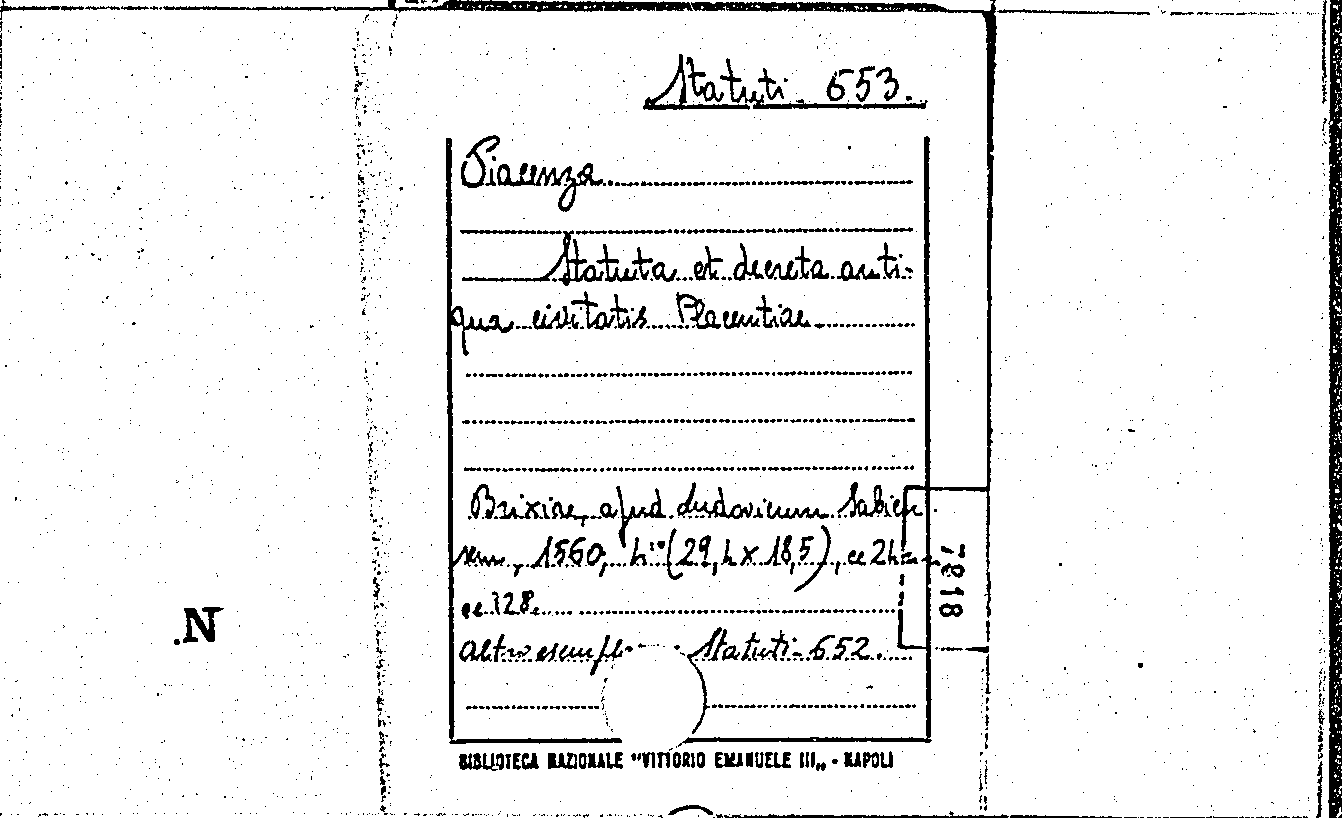 Statuti. 653.
Piacenza
Statuta et decreta anti-
qua civitatis Placentiae.
Brixiae, apud Ludovicum Sabien
sem, 1560, 4° (29,4 x 18,5), cc 24
cc 128.
altro esempl Statuti-652.
7818
N.
BIBLIOTECA NAZIONALE "VITTORIO EMANUELE III„ - NAPOLI